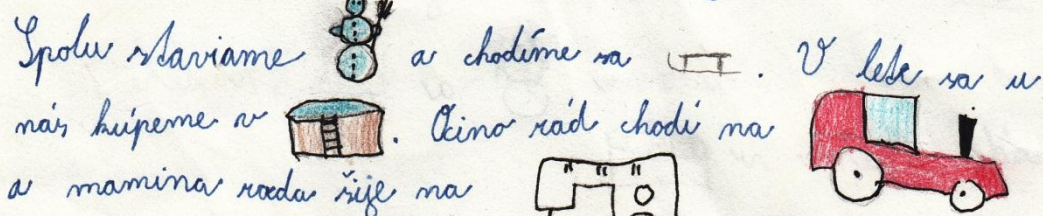 Spolu staviame a chodíme sa . V lete sa u
nás kúpeme v . Ocino rád chodí na
a mamina rada šije na